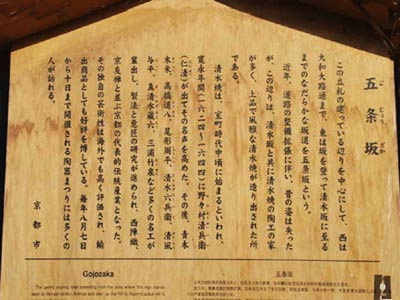 五条坂
ご じょう ざか
この立札の建っている辺りを中心にして、西は
大和大路通まで、東は坂を登って清水坂に至る
までのなだらかな坂道を五条坂という。
近年、道路の整備拡張に伴い、昔の姿は失った
が、この辺りは、清水坂と共に清水焼の陶工の家
が多く、上品で風雅な清水焼が造り出された所
である。
清水焼は、室町時代中頃に始まるといわれ、
寛永年間(一六二四~一六四四)に野々村清兵衛
(仁清)が出てその名声を高めた。その後、青木
木米、高橋道八、尾形周平、清水六兵衛、清風
与平、真清水蔵六、三浦竹泉など多くの名工が
輩出し、製法と意匠の研究が進められ、西陣織、
京友禅と並ぶ京都の代表的伝統産業となった。
その独自の芸術性は海外でも高く評価され、輸
出商品としても好評を博している。毎年八月七日
から十日まで開催される陶器まつりには多くの
人が訪れる。
京都市
Gojozaka
The gently sloping road extending from the area where this sign stands
west to Yamato-oji-dori Avenue and east up the hill to Kiyomizuzaka Hill is
五条坂